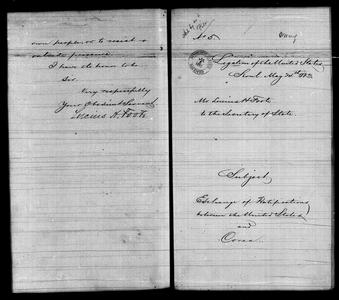 own people, or to resist
outside pressure.
I have the honor to be
Sir
Very respectfully
Your Obedient Servant
Lucius H. Foote
No 5
Legation of the United States
Seoul May 24th 1883
Mr Lucius H. Foote
to the Secretary of State.
Subject
Exchange of Ratifications
between the United States
and
Corea.